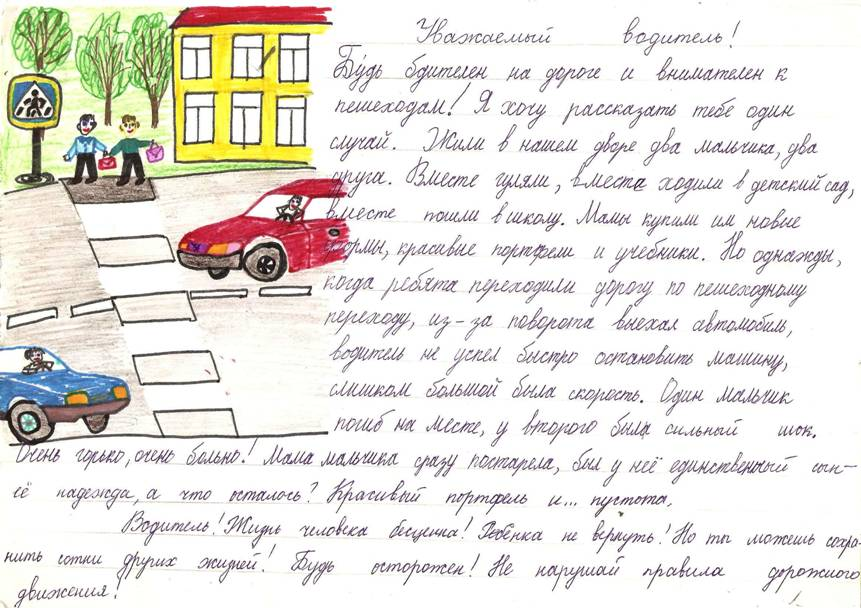 Уважаемый водитель!
Будь бдителен на дороге и внимателен к
пешеходам! Я хочу рассказать тебе один
случай. Жили в нашем дворе два мальчика, два
друга. Вместе гуляли, вместа ходили в детский сад,
вместе пошли в школу. Мамы купили им новые
формы, красивые портфели и учебники. Но однажды,
когда ребята переходили дорогу по пешеходному
переходу, из-за поворота выехал автомобиль,
водитель не успел быстро остановить машину,
слишком большой была скорость. Один мальчик
погиб на месте, у второго была сильный шок.
Очень горько, очень больно! Мама мальчика сразу постарела, был у неё единственный сын-
её надежда, а что осталось? Красивый портфель и... пустота.
Водитель! Жизнь человека бесценна! Ребёнка не вернуть! Но ты можешь сохра-
нить сотни других жизней! Будь осторожен! Не нарушай правила дорожного
движения!